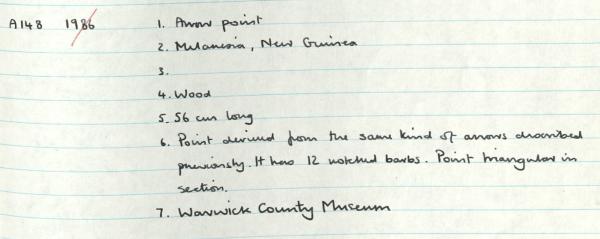 A148 1986 1. Arrow point
2. Melanesia, New Guinea
3.
4. Wood
5. 56 cm long
6. Point derived from the same kind of arrows described
previously. It has 12 notched barbs. Point triangular in
section.
7. Warwick County Museum